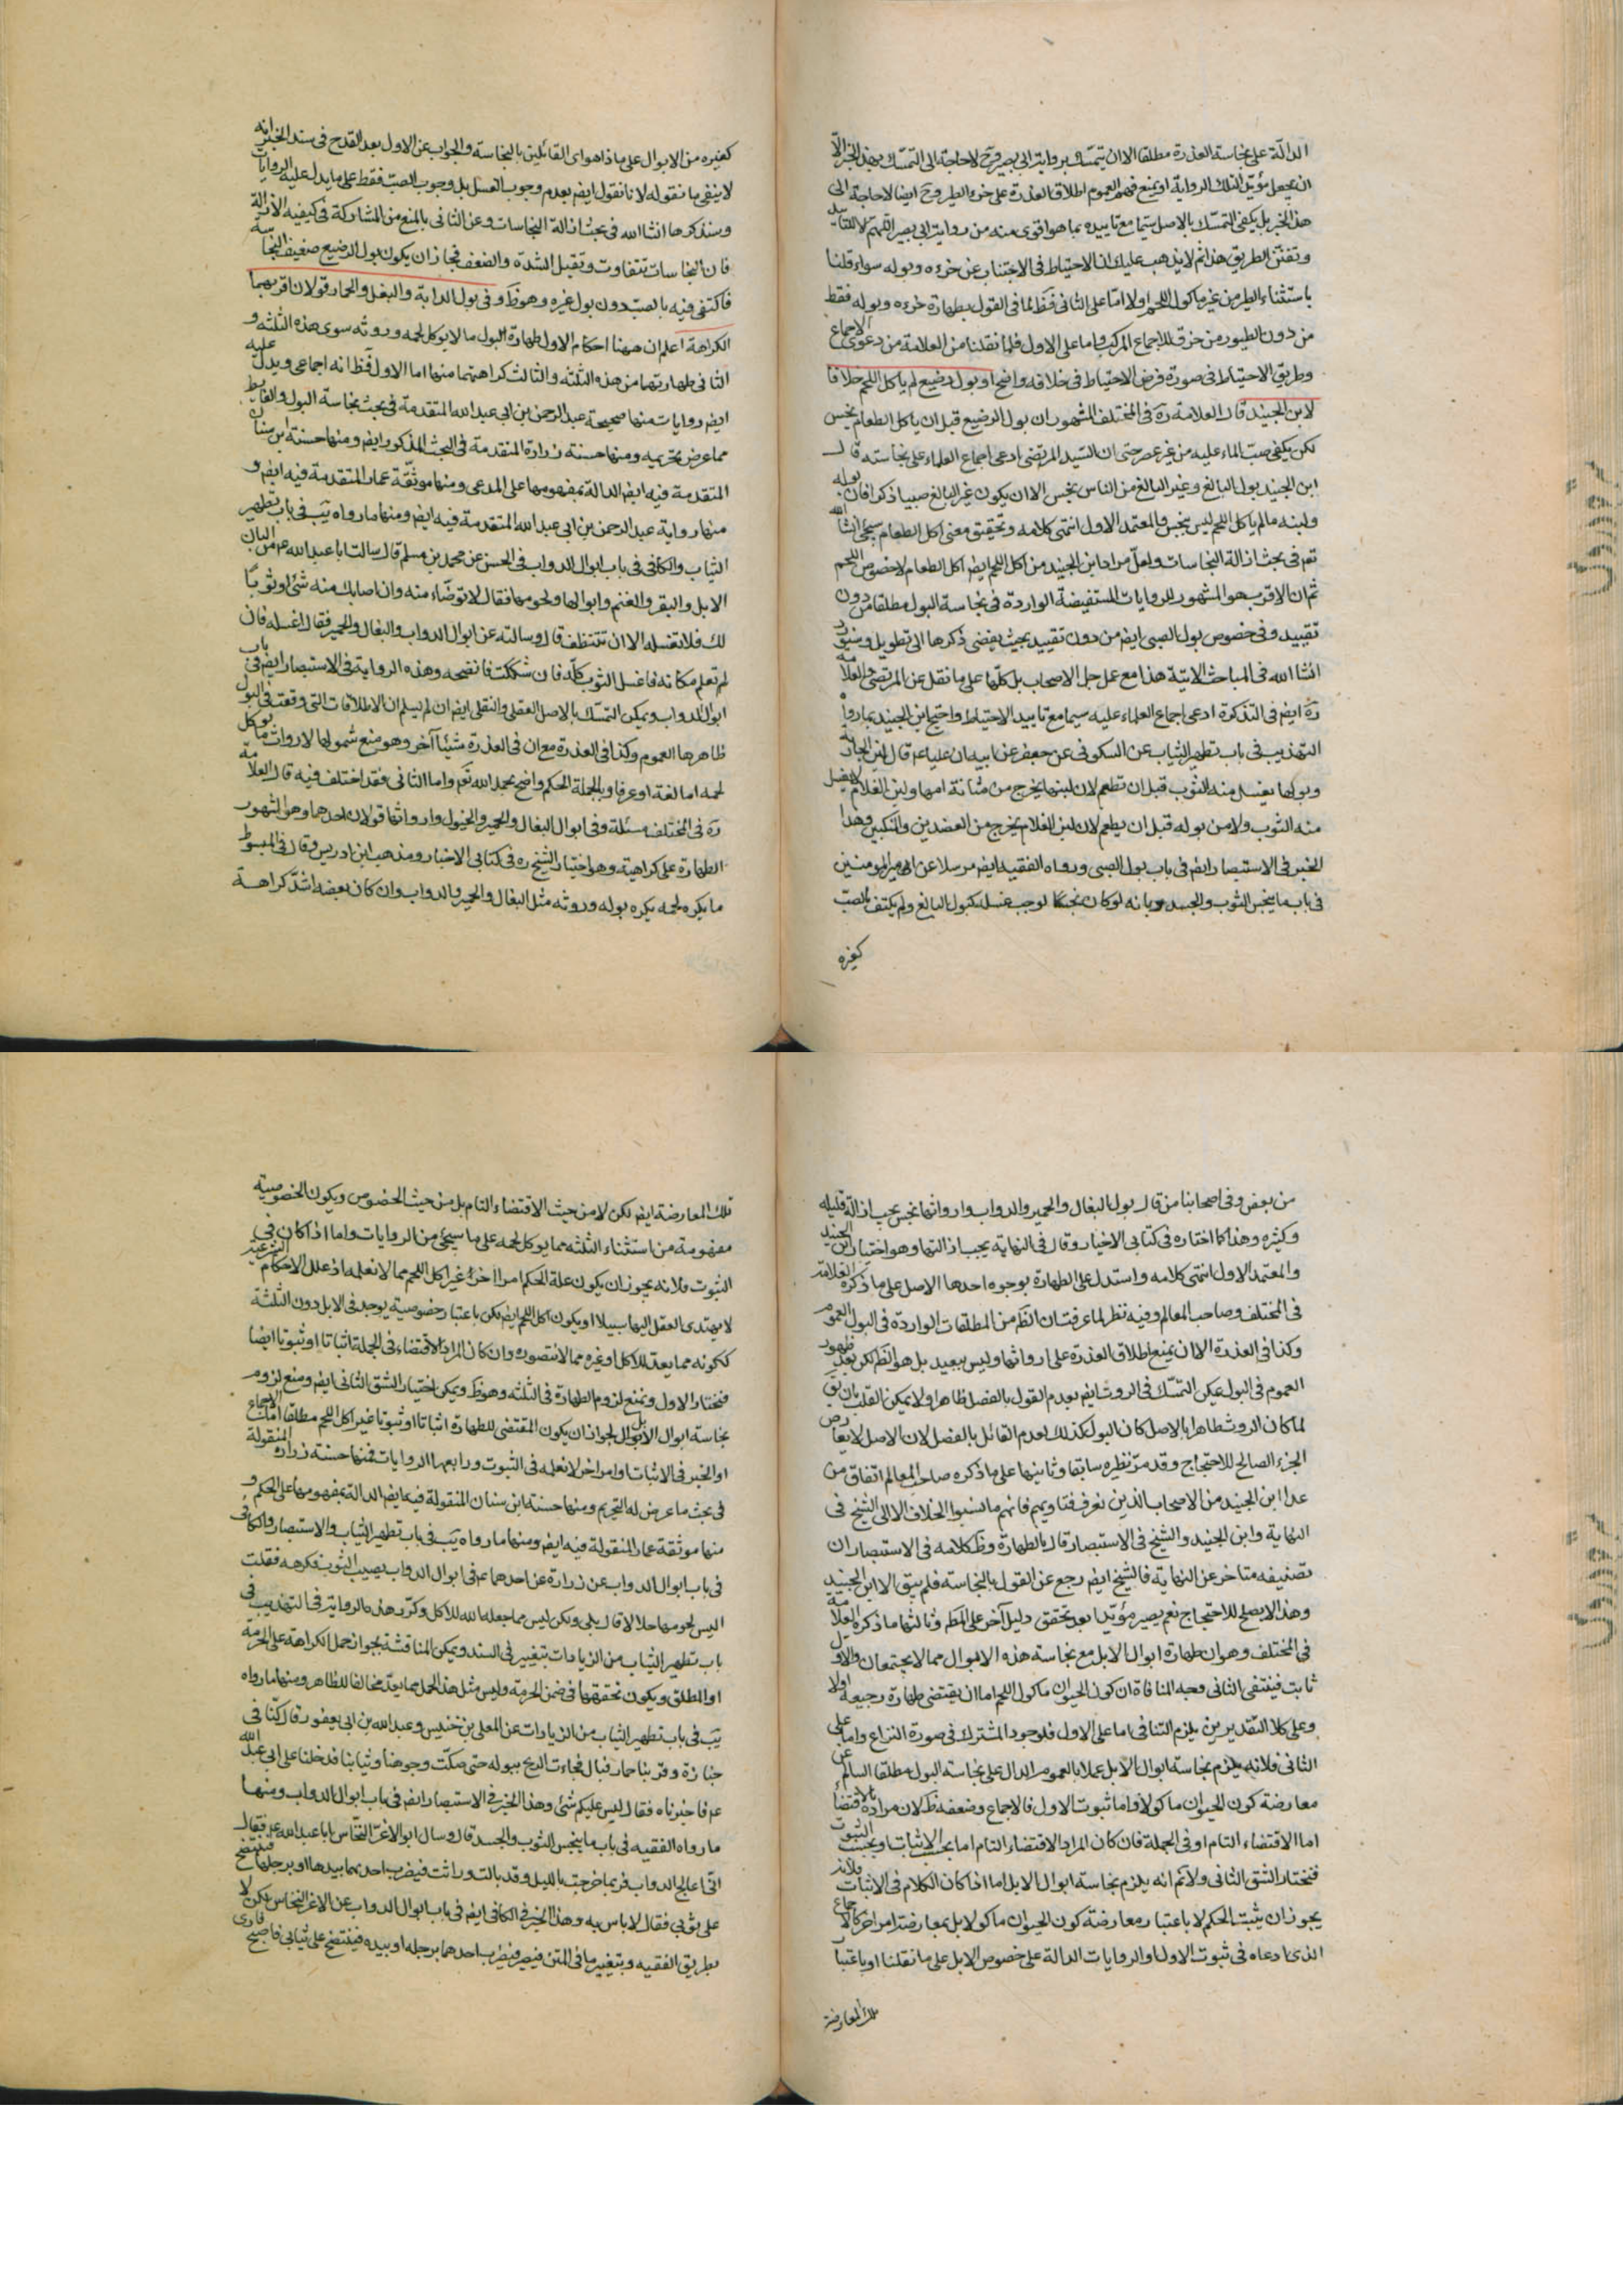 الدالّة على نجاسة العذرة مطلقا الا ان يتمسّك برواية ابى بصير وح لاحاجة الى التمسّك بهذا الخبر الّا
ان يجعل مؤيّدا لتلك الرواية او يمنع فهم العموم اطلاق العذرة على خرء الطير وح ايضا لاحاجة الى
هذا الخبر بل يكفى التمسّك بالاصل سيّما مع تاييده بما هو اقوى منه من رواية ابى بصير اللّهمّ الا للتاييد
وتفنّن الطريق هذا ثم لا يذهب عليك ان الاحتياط فى الاجتناب عن خرءه وبوله سواء قلنا
باستثناء الطير من غير ماكول اللحم اولا امّا على الثانى فظ لما فى القول بطهارة خرءه وبوله فقط
من دون الطيور من خرق للاجماع المركب واما على الاول فلما نقلنا من العلامة من دعوى الاجماع
وطريق الاحتياط فى صورة فرض الاحتياط فى خلافه واضح او بول رضيع لم ياكل اللحم خلافا
لابن الجنيد قال العلامة ره فى المختلف المشهور ان بول الرضيع قبل ان ياكل الطعام نجس
لكن يكفى صبّ الماء عليه من غير عصر حتى ان السّيد المرتضى ادعى اجماع العلماء على نجاسته قال
ابن الجنيد بول البالغ وغير البالغ من الناس نجس الا ان يكون غير البالغ صبيا ذكرا فان بوله
ولبنه مالم ياكل اللحم ليس بنجس والمعتمد الاول انتهى كلامه وتحقيق معنى اكل الطعام سيجئ انشا الله
تع فى بحث ازالة النجاسات ولعلّ مراد ابن الجنيد من اكل اللحم ايض اكل الطعام لا خصوص اللحم
ثم ان الاقرب هو المشهور للروايات المستفيضة الواردة فى نجاسة البول مطلقا من دون
تقييد وفى خصوص بول الصبى ايض من دون تقييد بحيث يفضى ذكرها الى تطويل وسنورد
انشا الله فى المباحث الاتية هذا مع عمل جل الاصحاب بل كلّها على ما نقل عن المرتضى والعلامة
ره ايض فى التذكرة ادعى اجماع العلماء عليه سيما مع تاييد الاحتياط واحتج ابن الجنيد بما رواه
التهذيب فى باب تطهير الثياب عن السكونى عن جعفر عن ابيه ان عليا عم قال لبن الجارية
وبولها يغسل منه الثوب قبل ان تطعم لان لبنها يخرج من مثانة امها ولبن الغلام لا يغسل
منه الثوب ولا من بوله قبل ان يطعم لان لبن الغلام يخرج من العضدين والمنكبين وهذا
الخبر فى الاستبصار ايض فى باب بول الصبى ورواه الفقيه ايض مرسلا عن امير المؤمنين
فى باب ما ينجس الثوب والجسد وبانه لو كان نجسًا لوجب غسله كبول البالغ ولم يكتف بالصبّ
كغيره
كغيره من الابوال على ما ذا هو اى القائلين بالنجاسة والجواب عن الاول بعد القدح فى سند الخبر انه
لا ينفى ما نقوله لانا نقول ايض بعدم وجوب الغسل بل وجوب الصبّ فقط على ما يدل عليه الروايات
وسنذكرها انشا الله فى بحث ازالة النجاسات وعن الثانى بالمنع من المشاركة فى كيفيه الازالة
فان النجاسات تتفاوت وتقبل الشدّة والضعف فجاز ان يكون بول الرضيع ضعيف النجاسة
فاكتفى فيه بالصبّ دون بول غيره وهو ظ وفى بول الدابة والبغل والحمار قولان اقربهما
الكراهة اعلم ان ههنا احكام الاول طهارة البول ما لا يوكل لحمه وروثه سوى هذه الثلثه و
الثانى طهارتهما من هذه الثلثه والثالث كراهتهما منها اما الاول فظ انه اجماعى ويدل عليه
ايض روايات منها صحيحة عبد الرحمن بن ابى عبد الله المتقدمة فى بحث نجاسة البول والغايط
مما عرض تحريمه ومنها حسنة زرارة المتقدمة فى البحث المذكور ايض ومنها حسنة ابن سنان
المتقدمة فيه ايض الدالة بمفهومها على المدعى ومنها موثّقة عمار المتقدمة فيه ايض و
منها رواية عبد الرحمن بن ابى عبد الله المتقدمة فيه ايض ومنها ما رواه يَب فى باب تطهير
الثياب والكافى فى باب ابوال الدواب فى الحسن عن محمد بن مسلم قال سالت ابا عبد الله عم من البان
الابل والبقر والغنم وابوالها ولحومها فقال لا توضّاء منه وان اصابك منه شئ او ثوبًا
لك فلا تغسله الا ان تتنظف قال وسالته عن ابوال الدواب والبغال والحمير فقال اغسله فان
لم تعلم مكانه فاغسل الثوب كلّه فان شككت فانضحه وهذه الرواية فى الاستبصار ايض فى باب
ابوال الدواب ويمكن التمسّك بالاصل العقلى والنقلى ايض ان لم يسلم ان الاطلاقات التى وقعت فى البول
ظاهرها العموم وكذا فى العذرة مع ان فى العذرة شيئا آخر وهو منع شمولها لارواث ما يوكل
لحمه اما لغة او عرفا وبالجملة الحكم واضح بحمد الله تع واما الثانى فقد اختلف فيه قال العلامة
ره فى المختلف مسئلة وفى ابوال البغال والحمير والخيول وارواثها قولان احدهما وهو المشهور
الطهارة على كراهية وهو اختيار الشيخ ره فى كتابى الاخبار ومذهب ابن ادريس وقال فى المبسوط
ما يكره لحمه يكره بوله وروثه مثل البغال والحمير والدواب وان كان بعضه اشدّ كراهة
من بعض وفى اصحابنا من قال بول البغال والحمير والدواب وارواثها نجس يجب ازالة قليله
وكثيره وهذا كما اختاره فى كتابى الاخبار وقال فى النهاية يجب ازالتها وهو اختيار ابن الجنيد
والمعتمد الاول انتهى كلامه واستدل على الطهارة بوجوه احدها الاصل على ما ذكره العلامة
فى المختلف وصاحب المعالم وفيه نظر لما عرفت ان الظم من المطلقات الواردة فى البول العموم
وكذا فى العذرة الا ان يمنع اطلاق العذرة على ارواثها وليس ببعيد بل هو الظم لكن بعد ظهور
العموم فى البول يمكن التمسّك فى الروث ايض بعدم القول بالفصل ظاهرا ولا يمكن القلب بان يق
لما كان الروث طاهرا بالاصل كان البول كذلك لعدم القائل بالفصل لان الاصل لا يعارض
الجزء الصالح للاحتجاج وقد مرّ نظيره سابقا وثانيها على ما ذكره صاحب المعالم اتفاق من
عدا ابن الجنيد من الاصحاب الذين نعرف فتاويهم فانهم ما نسبوا الخلاف الا الى الشيخ فى
النهاية وابن الجنيد والشيخ فى الاستبصار قال بالطهارة وظ كلامه فى الاستبصار ان
تصنيفه متاخر عن النهاية فالشيخ ايض رجع عن القول بالنجاسة فلم يبق الا ابن الجنيد
وهذا لا يصلح للاحتجاج نعم يصير مؤيّدا بعد تحقق دليل آخر على المط وثالثها ما ذكره العلامة
فى المختلف وهو ان طهارة ابوال الابل مع نجاسة هذه الابوال مما لا يجتمعان والاول
ثابت فينتفى الثانى وجه المنافاة ان كون الحيوان ماكول اللحم اما ان يقتضى طهارة رجيعه اولا
وعلى كلا التقديرين يلزم التنافى اما على الاول فلوجود المشترك فى صورة النزاع واما على
الثانى فلانه يلزم نجاسة ابوال الابل عملا بالعموم الدال على نجاسة البول مطلقا السالم عن
معارضة كون الحيوان ماكولا واما ثبوت الاول فالاجماع وضعفه ظ لان مراده بالاقتضاء
اما الاقتضاء التام او فى الجملة فان كان المراد الاقتضاء التام اما بحسب الاثبات او بحسب الثبوت
فنختار الشق الثانى ولانم انه يلزم نجاسة ابوال الابل اما اذا كان الكلام فى الاثبات فلانه
يجوز ان يثبت الحكم لا باعتبار معارضة كون الحيوان ماكولا بل بمعارضة امر اخر كالاجماع
الذى ادعاه فى ثبوت الاول والروايات الدالة على خصوص الابل على ما نقلنا او باعتبار
تلك المعارضة
تلك المعارضة ايض لكن لا من حيث الاقتضاء التام بل من حيث الخصوص ويكون الخصوصية
مفهومة من استثناء الثلثه مما يوكل لحمه على ما سيجئ من الروايات واما اذا كان فى
الثبوت فلانه يجوز ان يكون علة الحكم امرا اخر غير اكل اللحم مما لا نعلمه اذ علل الاحكام الشرعية
لا يهتدى العقل اليها سبيلا او يكون اكل اللحم ايض لكن باعتبار خصوصية يوجد فى الابل دون الثلثة
ككونه مما يعدّ للاكل او غيره مما لا نتصوره وان كان المراد الاقتضاء فى الجملة اثباتا او ثبوتا ايضا
فنختار الاول ونمنع لزوم الطهارة فى الثلثه وهو ظ ويمكن اختيار الشق الثانى ايض ومنع لزوم
نجاسة ابوال الابل لجواز ان يكون المقتضى للطهارة اثباتا او ثبوتا غير اكل اللحم مطلقا امّا الاجماع
او الخبر فى الاثبات او امر اخر لا نعلمه فى الثبوت ورابعها الروايات فمنها حسنة زرارة المنقولة
فى بحث ما عرض له التحريم ومنها حسنة ابن سنان المنقولة فيه ايض الدالة بمفهومها على الحكم و
منها موثقة عمار المنقولة فيه ايض ومنها ما رواه يَب فى باب تطهير الثياب والاستبصار والكافى
فى باب ابوال الدواب عن زرارة عن احدهما عم فى ابوال الدواب يصيب الثوب فكرهه فقلت
اليس لحومها حلالا قال بلى ولكن ليس مما جعله الله للاكل وكرّر هذه الرواية فى التهذيب فى
باب تطهير الثياب من الزيادات بتغيير فى السند ويمكن المناقشة بجواز حمل الكراهة على الحرمة
او المطلق ويكون تحققها فى ضمن الحرمة وليس مثل هذا الحمل مما يعدّ مخالفا للظاهر ومنها ما رواه
يَب فى باب تطهير الثياب من الزيادات عن المعلى بن خنيس وعبد الله بن ابى يعفور قال كنّا فى
جنازة وقربنا حمار فبال فجاءت الريح ببوله حتى صكّت وجوهنا وثيابنا فدخلنا على ابى عبد الله
عم فاخبرناه فقال ليس عليكم شئ وهذا الخبر فى الاستبصار ايض فى باب ابوال الدواب ومنها
ما رواه الفقيه فى باب ما ينجس الثوب والجسد قال وسال ابو الاغرّ النخّاس ابا عبد الله عم فقال
انّى اعالج الدواب فربما خرجت بالليل وقد بالت وراثت فيضرب احدهما بيدها او برجلها فينضح
على ثوبى فقال لا باس به وهذا الخبر فى الكافى ايض فى باب ابوال الدواب عن الاغر النخاس لكن لا
بطريق الفقيه وبتغيير ما فى المتن فيصير فيضرب احدهما برجله او بيده فينتضح على ثيابى فاصبح فارى